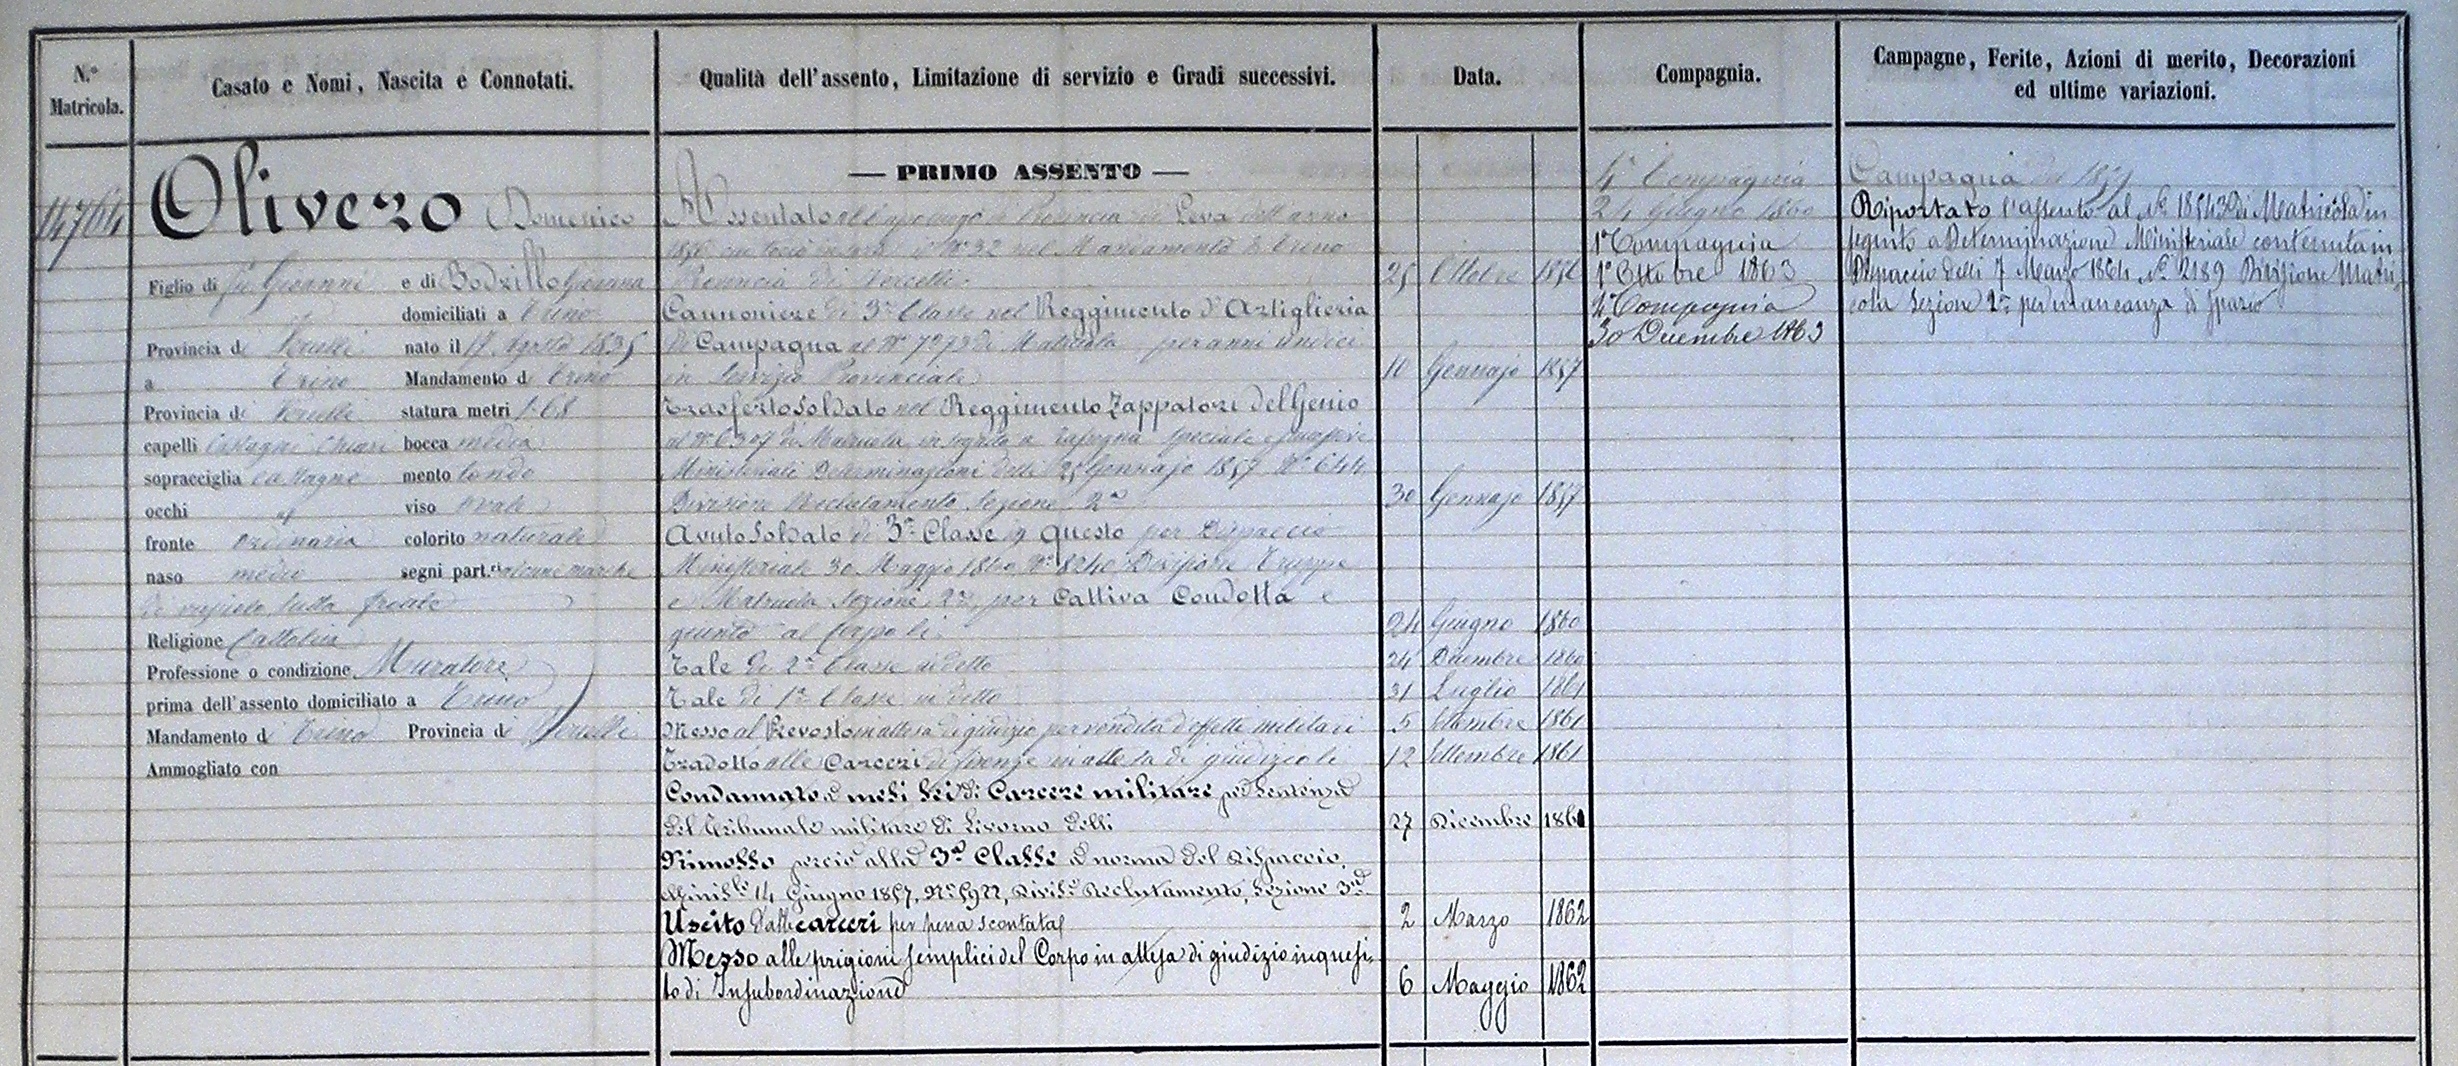 N.º Matricola.
Casato e Nomi, Nascita e Connotati.
Qualità dell'assento, Limitazione di servizio e Gradi successivi.
Data.
Compagnia.
Campagne, Ferite, Azioni di merito, Decorazioni
ed ultime variazioni.
14764
Olivero Domenico
Figlio di fu Gioanni e di Giovanna
domiciliati a Trino
Provincia di Vercelli nato il 17 Agosto 1835
a Trino Mandamento di Trino
Provincia di Vercelli statura metri 1.68
capelli Castagni Chiari bocca media
sopracciglia Castagne mento tondo
occhi id viso ovale
fronte ordinaria colorito naturale
naso medio segni part.ri alcune marche
di vajuolo sulla fronte
Religione Cattolica
Professione o condizione Muratore
prima dell'assento domiciliato a Trino
Mandamento di Trino Provincia di Vercelli
Ammogliato con
— PRIMO ASSENTO —
Assentato Provincia di Leva dell'anno
N° 32 nel Mandamento di Trino
Provincia di Vercelli 25 Ottobre 1856
Cannoniere di 3ª Classe nel Reggimento d'Artiglieria
di Campagna al N° 7273 di Matricola per anni undici
in Servizio Provinciale 10 Gennajo 1857
Trasferto Soldato nel Reggimento Zappatori del Genio
al N° 6307 di Matricola in seguito a rassegna speciale e
Ministeriali Determinazioni delli 25 Gennajo 1857 N° 644
Divisione Reclutamento Sezione 2ª 30 Gennajo 1857
Avuto Soldato di 3ª Classe in questo per Dispaccio
Ministeriale 30 Maggio 1860 N° 8240 Divisione Truppe
e Matricola Sezione 2ª, per Cattiva Condotta e
giunto al Corpo li 24 Giugno 1860
Tale di 2ª Classe in detto 24 Dicembre 1860
Tale di 1ª Classe in detto 31 Luglio 1861
Messo al Prevosto in attesa di giudizio per vendita d'effetti militari 5 Settembre 1861
Tradotto alle Carceri di Firenze in attesa di giudizio li 12 Settembre 1861
Condannato a mesi sei di Carcere militare per Sentenza
del Tribunale militare di Livorno delli 27 Dicembre 1861
Rimosso perciò alla 3ª Classe a norma del Dispaccio
Minis.le 14 Giugno 1857, N° 5922, Divis.e Reclutamento, Sezione 3ª
Uscito dalle carceri per pena scontata 2 Marzo 1862
Messo alle prigioni semplici del Corpo in attesa di giudizio inquisi-
to di Insubordinazione 6 Maggio 1862
4ª Compagnia
24 Giugno 1860
1ª Compagnia
1° Ottobre 1863
2ª Compagnia
30 Dicembre 1863
Campagna del 1859
Riportato l'assento al N° 18543 di Matricola in
seguito a Determinazione Ministeriale contenuta in
Dispaccio delli 7 Marzo 1864 N° 2189 Divisione Matri-
cola Sezione 2ª per mancanza di spazio